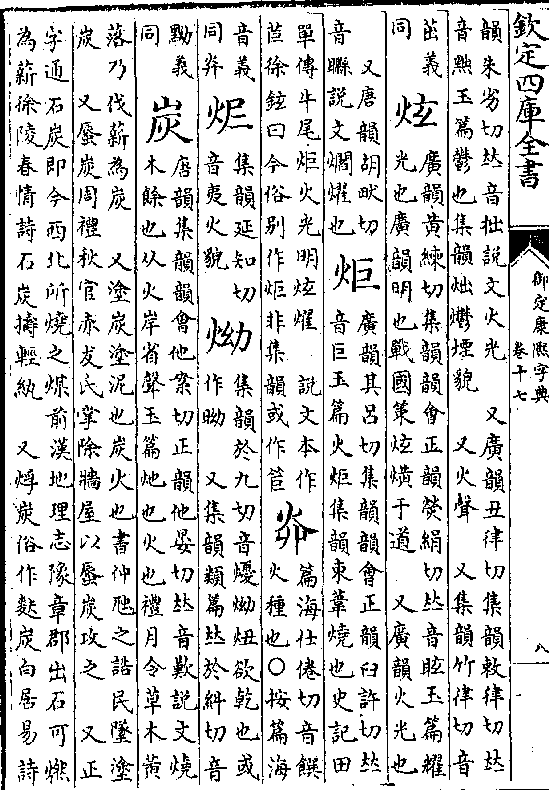 欽定四庫全書
御定康熙字典
卷十七
八
韻朱劣切𠀤音拙說文火光　又廣韻丑律切集韻敕律切𠀤
音黜玉篇鬱也集韻炪爩煙貌　又火聲　又集韻竹律切音
茁義
同
炫
廣韻黃練切集韻韻會正韻熒絹切𠀤音眩玉篇耀
光也廣韻明也戰國策炫熿于道　又廣韻火光也
又唐韻胡畎切
音說文爓燿也
炬
廣韻其呂切集韻韻會正韻臼許切𠀤
音巨玉篇火炬集韻束葦燒也史記田
單傳牛尾炬火光明炫燿　說文本作
苣徐鉉曰今俗別作炬非集韻或作
篇海仕倦切音饌
火種也○按篇海
音義
同
集韻延知切
音夷火貌
㶭
集韻於九切音懮㶭炄欲乾也或
作　又集韻類篇𠀤於糾切音
黝義
同
炭
唐韻集韻韻會他案切正韻他晏切𠀤音歎說文燒
木餘也从火岸省聲玉篇灺也火也禮月令草木黃
落乃伐薪為炭　又塗炭塗泥也炭火也書仲虺之誥民墜塗
炭　又蜃炭周禮秋官赤犮氏掌除牆屋以蜃炭攻之　又正
字通石炭即今西北所燒之煤前漢地理志豫章郡出石可燃
為薪徐陵春情詩石炭擣輕紈　又烰炭俗作麩炭白居易詩